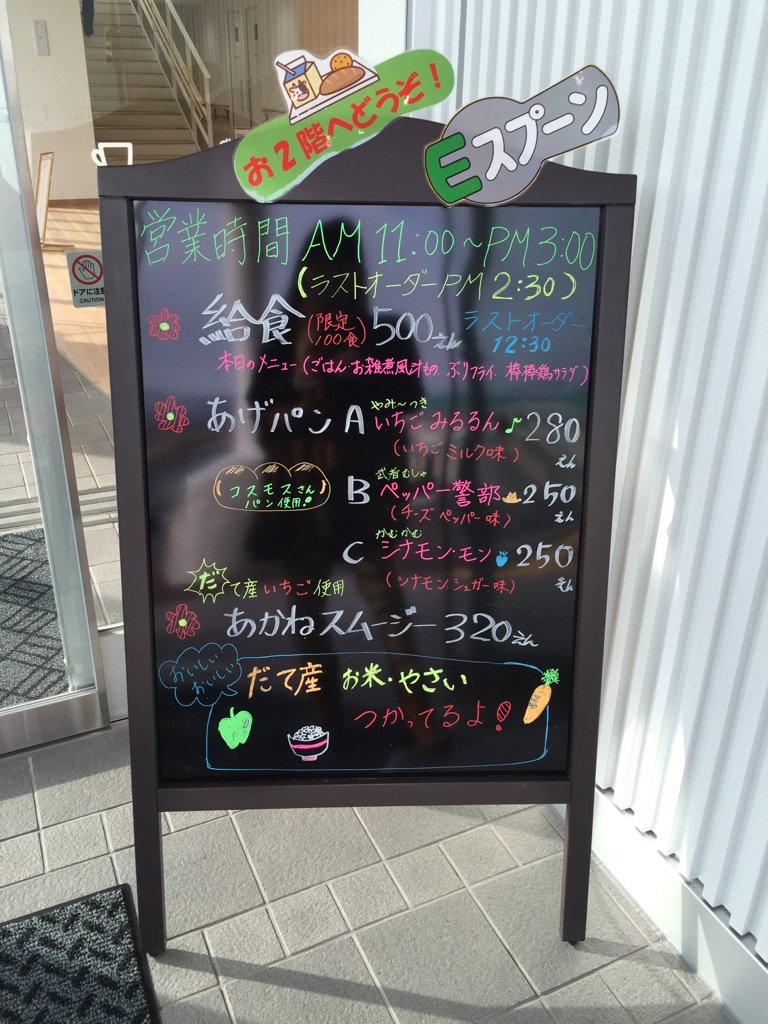 お2階へどうぞ!
Eスプーン
営業時間 AM 11:00~PM 3:00
(ラストオーダーPM 2:30)
給食 (限定100食) 500えん ラストオーダー 12:30
本日のメニュー(ごはん・お雑煮風汁もの、ぶりフライ、棒棒鶏サラダ)
やみ~つき
あげパン A いちごみるるん♪ 280えん
(いちごミルク味)
武者むしゃ
コスモスさんパン使用! B ペッパー警部 250えん
(チーズペッパー味)
かむかむ
C シナモン・モン 250えん
(シナモンシュガー味)
だて産いちご使用
あかねスムージー 320えん
おいしい おいしい
だて産 お米・やさい
つかってるよ!
ドアに注意
CAUTION